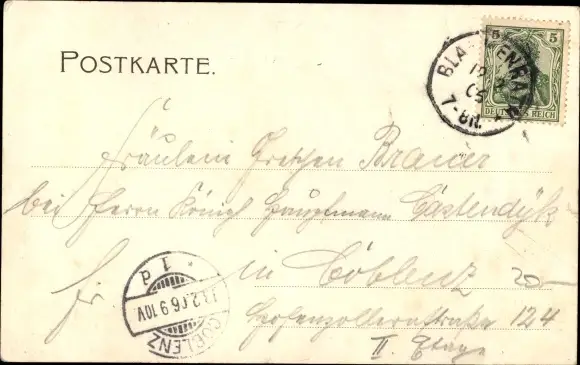 POSTKARTE.
5 5
DEUTSCHES REICH
BLANKENRATH
7-8N.
Fräulein Gretchen Brauer
bei Herrn Königl Hauptmann Castendÿk
in Coblenz
20
Hohenzollernstraße 124
II. Etage
COBLENZ
13.2.06.9.10V
1 d